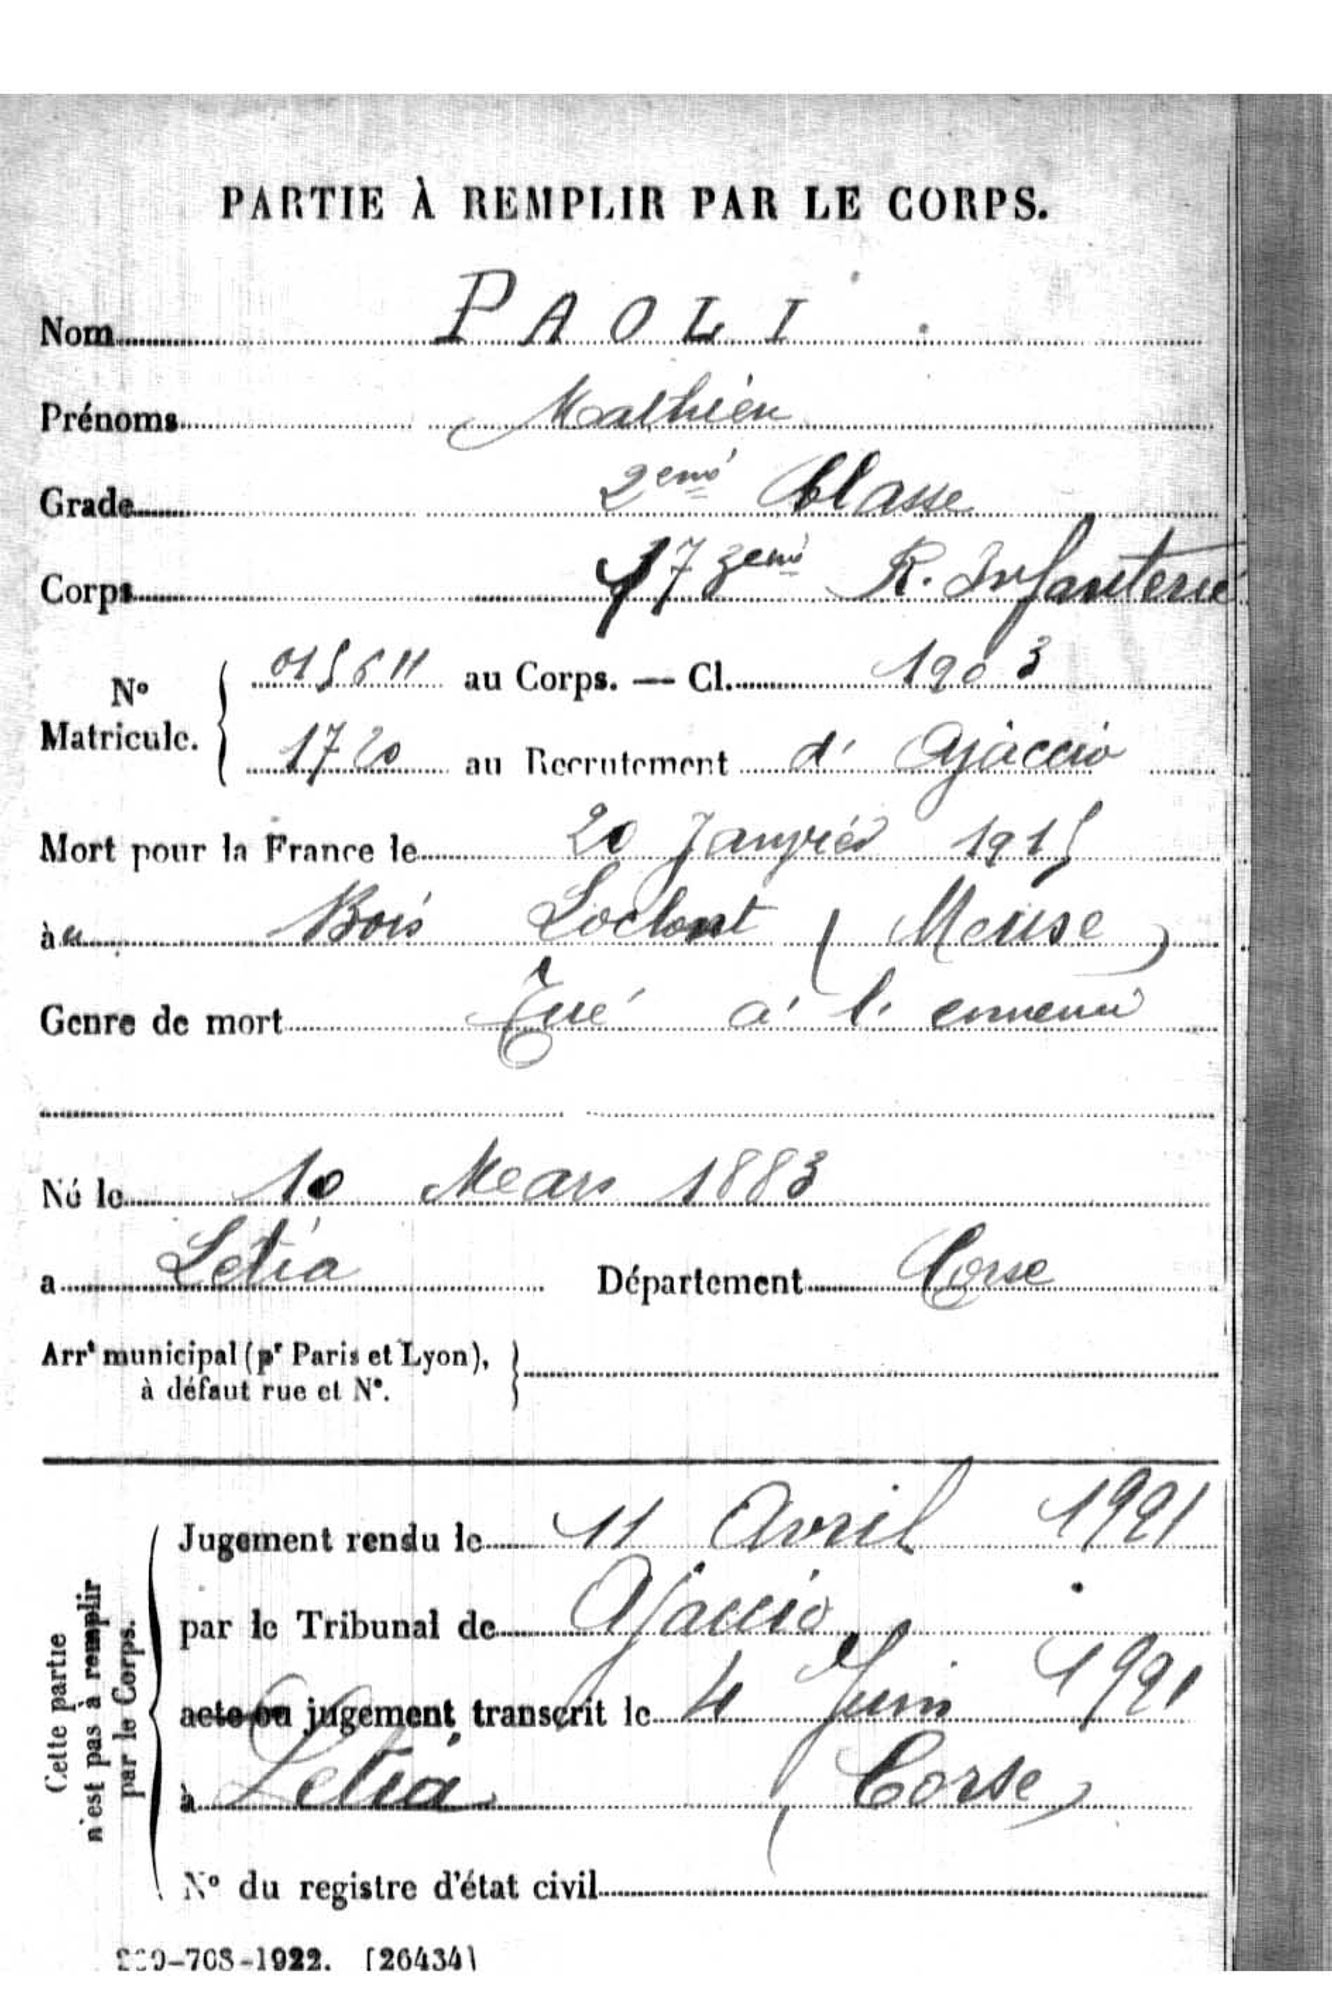 PARTIE À REMPLIR PAR LE CORPS.
Nom PAOLI
Prénoms Mathieu
Grade 2eme Classe
Corps 173eme R. Infanterie
No Matricule. 015611 au Corps. — Cl. 1903
1720 au Recrutement d' Ajaccio
Mort pour la France le 20 Janvier 1915
à u Bois (Meuse)
Genre de mort Tué à l'ennemi
Né le 10 Mars 1883
a Letia Département Corse
Arrt municipal (pr Paris et Lyon),
à défaut rue et N°.
Cette partie
n'est pas à remplir
par le Corps.
Jugement rendu le 11 Avril 1921
par le Tribunal de Ajaccio
acte ou jugement transcrit le 4 Juin 1921
à Letia (Corse)
N° du registre d'état civil
-708-1922. [26434]